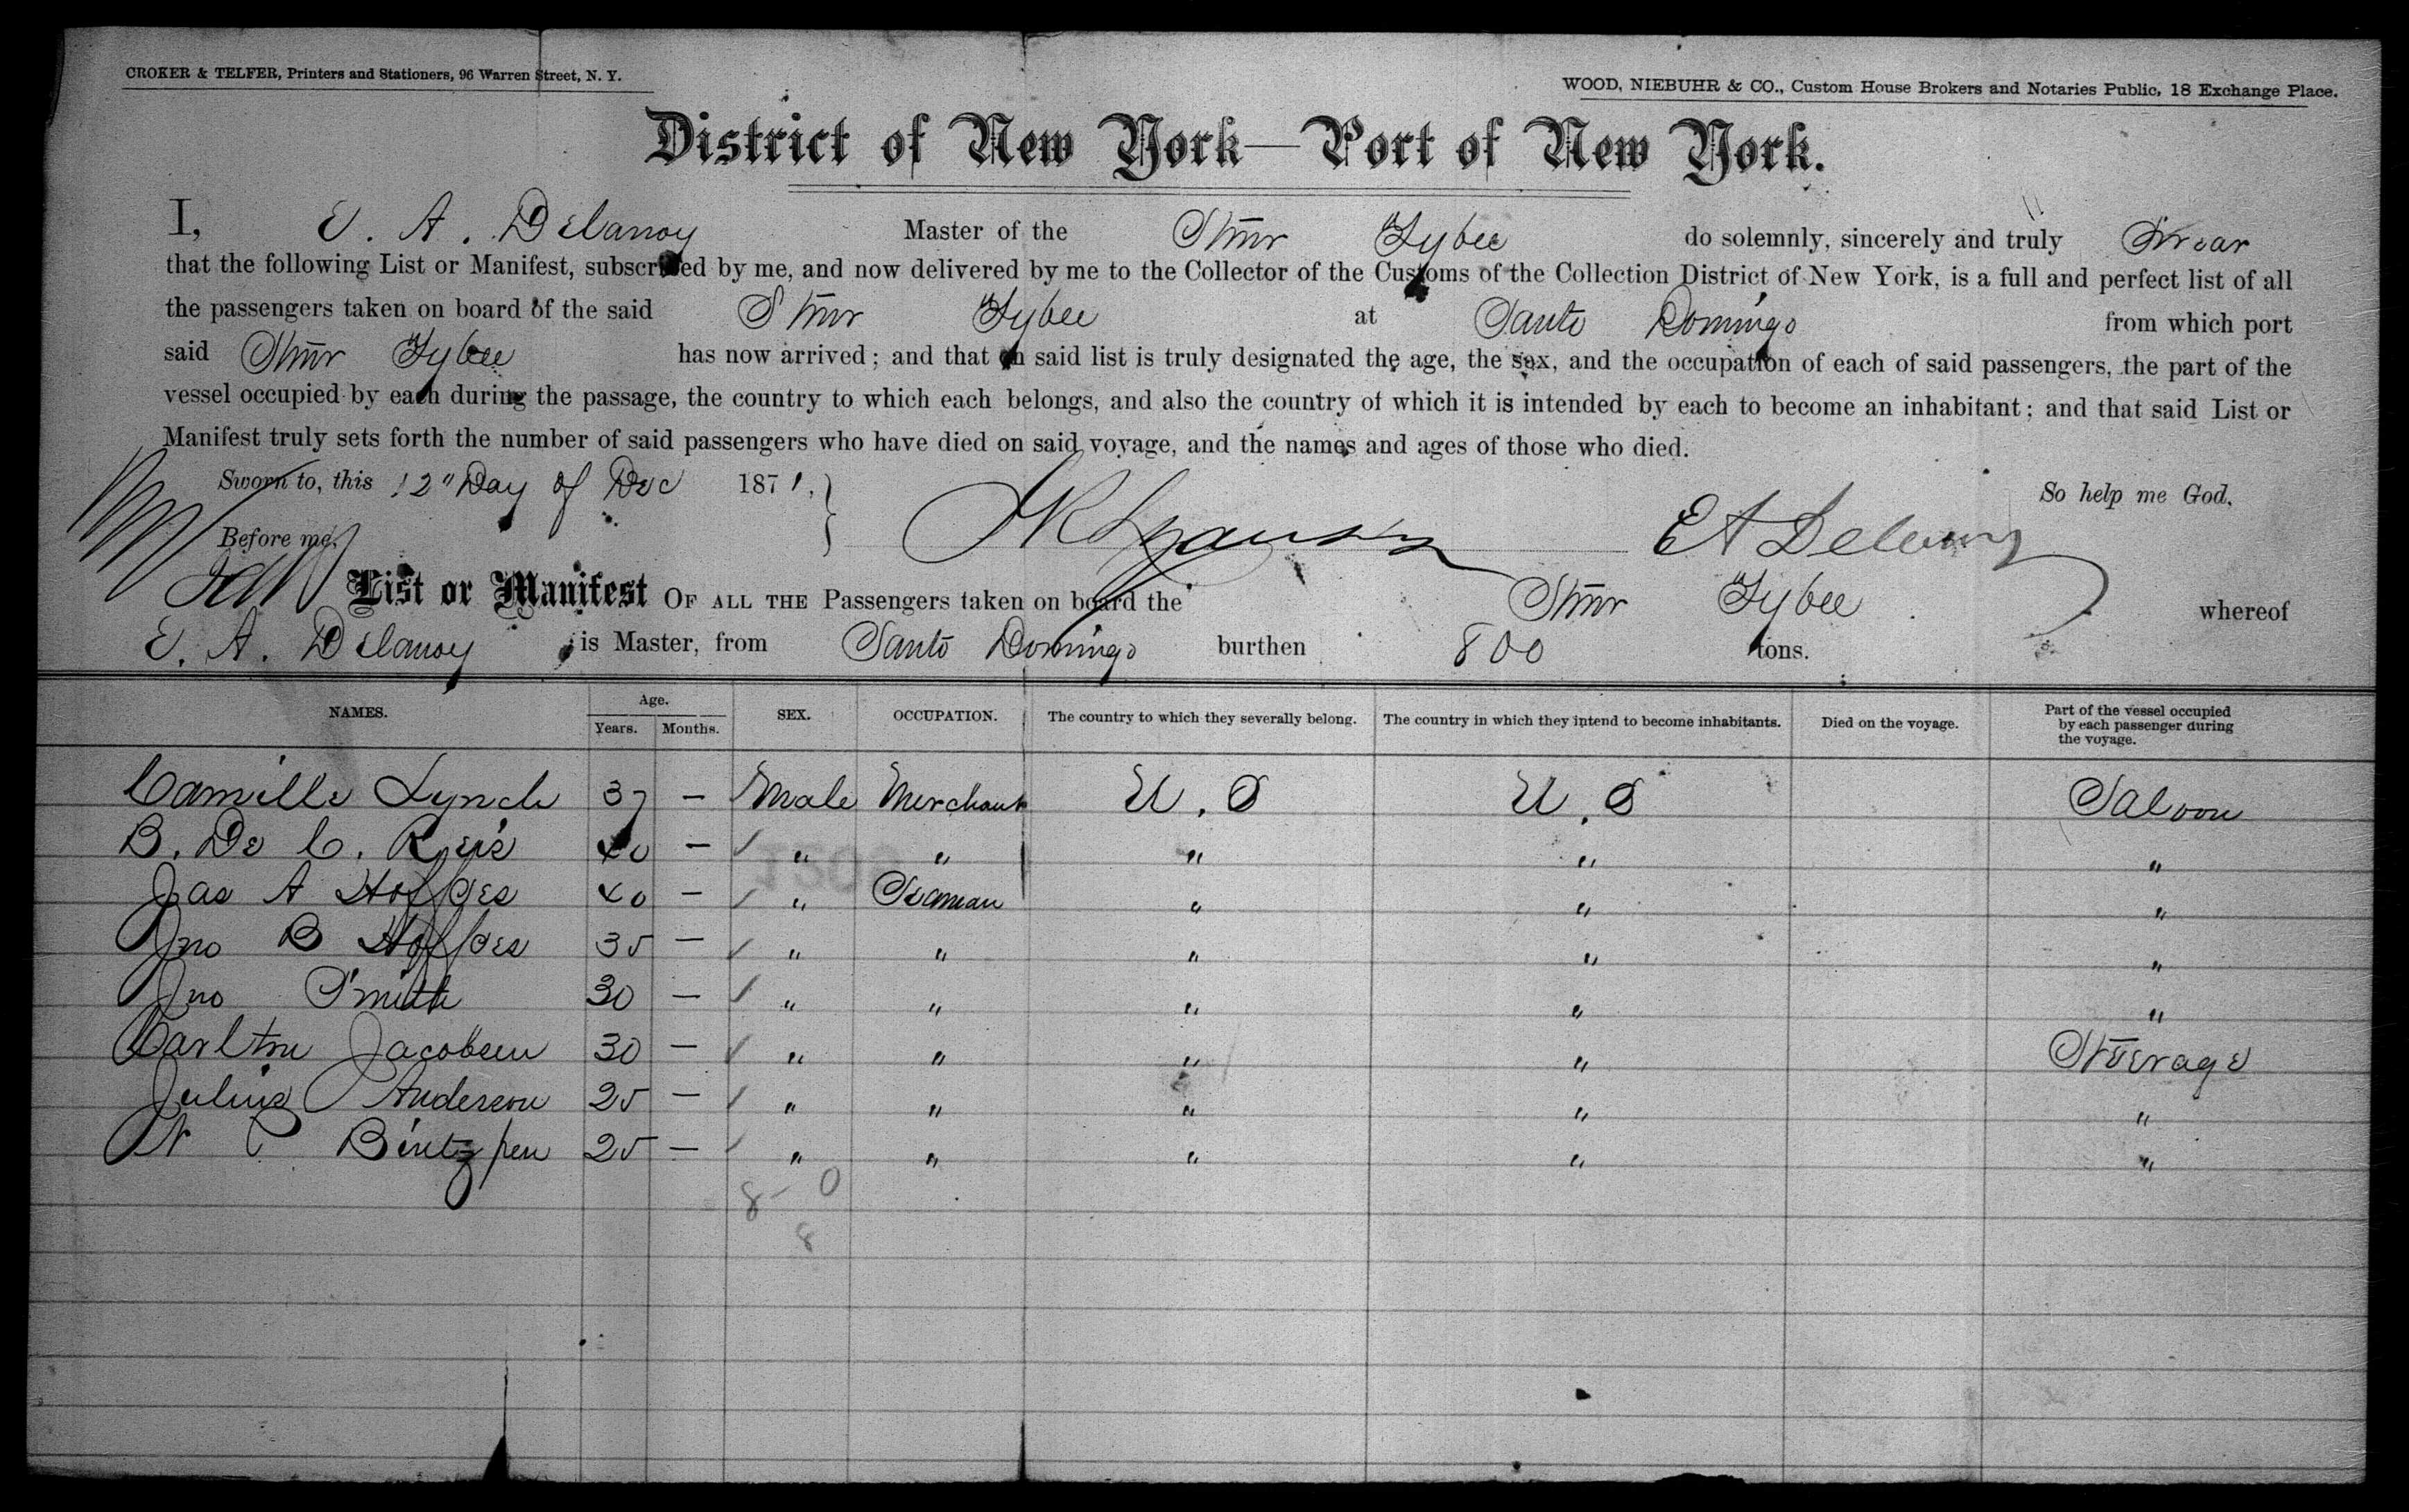 CROKER & TELFER, Printers and Stationers, 96 Warren Street, N. Y.
WOOD, NIEBUHR & CO., Custom House Brokers and Notaries Public, 18 Exchange Place.
District of New York—Port of New York.
I, E. A. Delanoy Master of the Stmr Tybee do solemnly, sincerely and truly Swear
that the following List or Manifest, subscribed by me, and now delivered by me to the Collector of the Customs of the Collection District of New York, is a full and perfect list of all
the passengers taken on board of the said Stmr Tybee at Santo Domingo from which port
said Stmr Tybee has now arrived; and that on said list is truly designated the age, the sex, and the occupation of each of said passengers, the part of the
vessel occupied by each during the passage, the country to which each belongs, and also the country of which it is intended by each to become an inhabitant; and that said List or
Manifest truly sets forth the number of said passengers who have died on said voyage, and the names and ages of those who died.
Sworn to, this 12" Day of Dec 1871. So help me God,
Before me, E A Delanoy
List or Manifest OF ALL THE Passengers taken on board the Stmr Tybee whereof
E. A. Delanoy is Master, from Santo Domingo burthen 800 tons.
NAMES. Age. Years. Months. SEX. OCCUPATION. The country to which they severally belong. The country in which they intend to become inhabitants. Died on the voyage. Part of the vessel occupied by each passenger during the voyage.
Camille Lynch 37 — Male Merchant U. S U. S Saloon
B. De C. Reis 40 — " " " " "
Jas A Hoffses 40 — " Seaman " " "
Jno B Hoffses 35 — " " " " "
Jno Smith 30 — " " " " "
Carlton Jacobsen 30 — " " " " Steerage
Julius Anderson 25 — " " " " "
25 — " " " " "
8 - 0
8